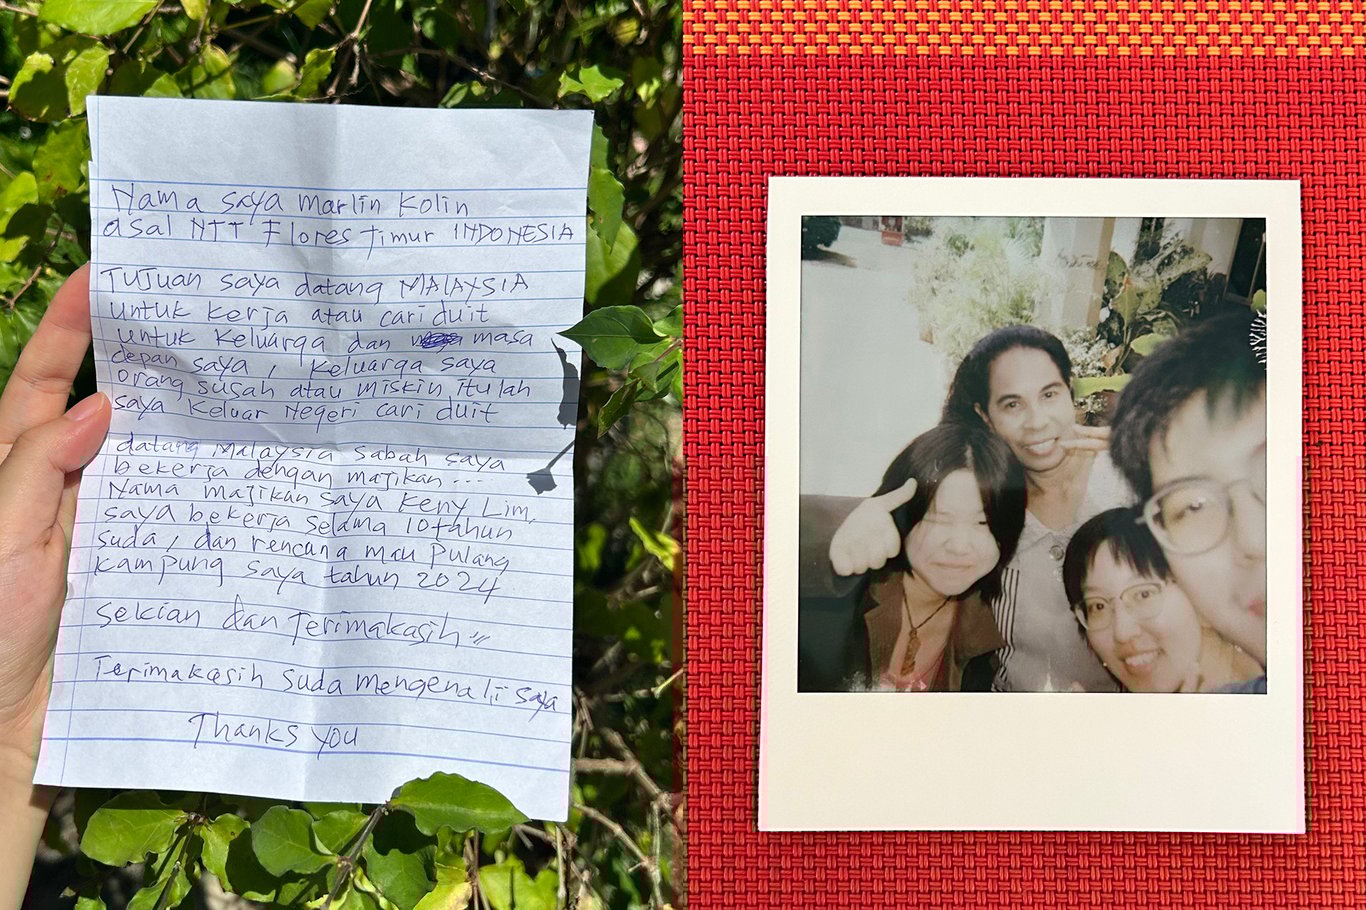 Nama saya Marlin Kolin
asal NTT Flores Timur INDONESIA
Tujuan saya datang MALAYSIA
untuk kerja atau cari duit
untuk keluarga dan masa
depan saya, keluarga saya
orang susah atau miskin itulah
saya keluar Negeri cari duit
datang Malaysia Sabah saya
bekerja dengan majikan...
Nama majikan saya Keny Lim,
saya bekerja selama 10 tahun
suda, dan rencana mau pulang
kampung saya tahun 2024
sekian dan Terimakasih
Terimakasih suda mengenali saya
Thanks you